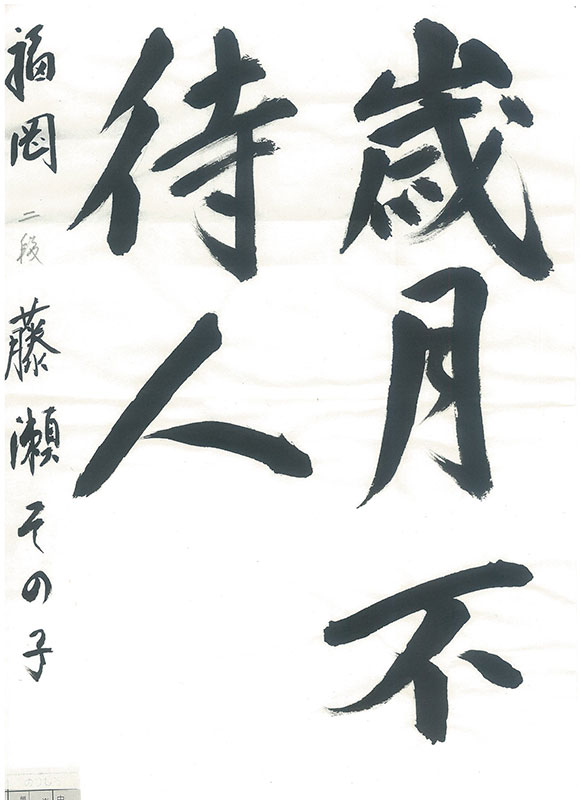 歳月不
待人
福岡 二段 藤瀬その子